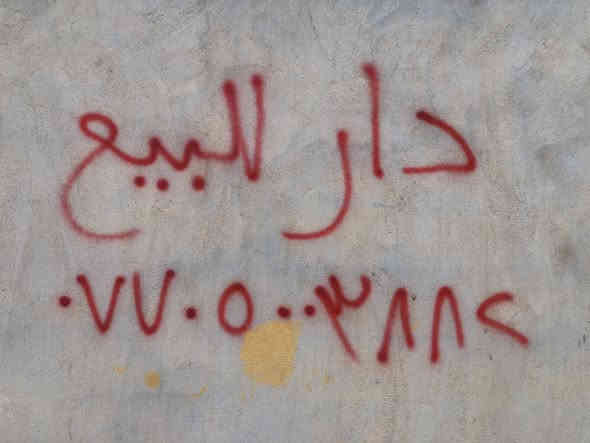 دار للبيع
٠٧٧٠٥٠٠٣٨٨٢